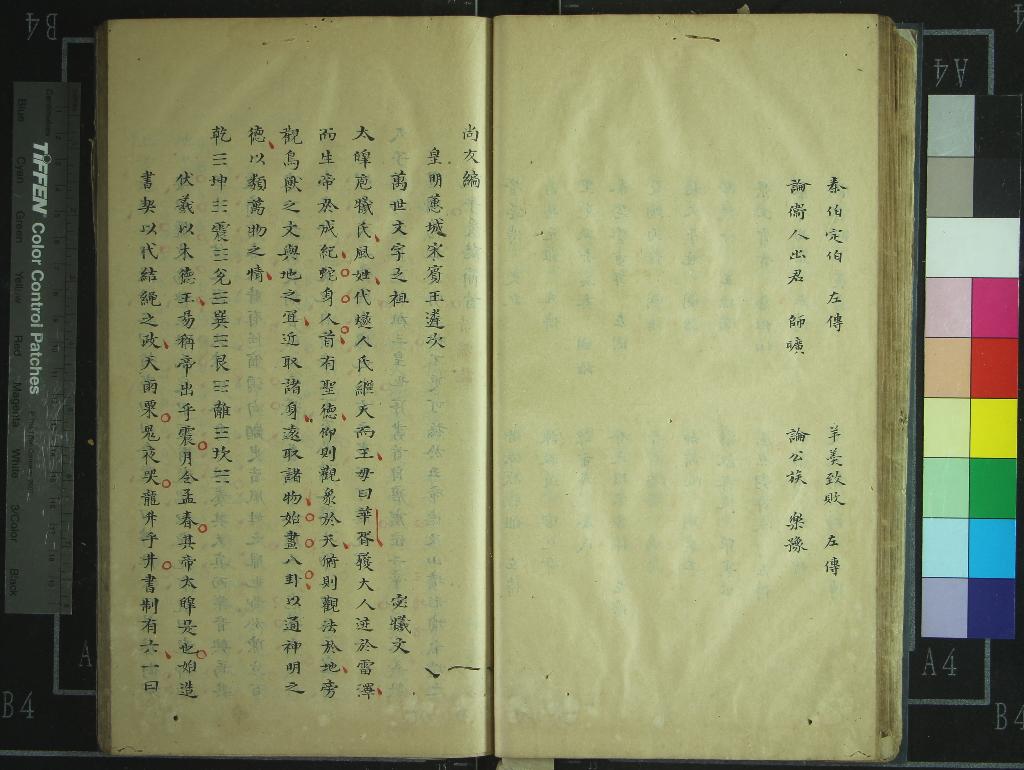 秦伯定伯 左傳 羊羹致敗 左傳
論衛人出君 師曠 論公族 樂豫
尚友編 一
皇明蕙城宋賓王遴次
萬世文字之祖 宓犧文
太皞庖犧氏風姓代燧人氏繼天而王母曰華胥履大人迹於雷澤
而生帝於成紀蛇身人首有聖德仰則觀象於天俯則觀法於地旁
觀鳥獸之文與地之宜近取諸身遠取諸物始畫八卦以通神明之
德以類萬物之情
乾☰坤☷震☳兌☱巽☴艮☶離☲坎☵
伏羲以木德王易稱帝出乎震月令孟春其帝太皞是也始造
書契以代結繩之政天雨粟鬼夜哭龍升乎井書制有六一曰
TIFFEN Color Control Patches
Blue Cyan Green Yellow Red Magenta White 3/Color Black
B4
A4
A4
B4
A4
B4